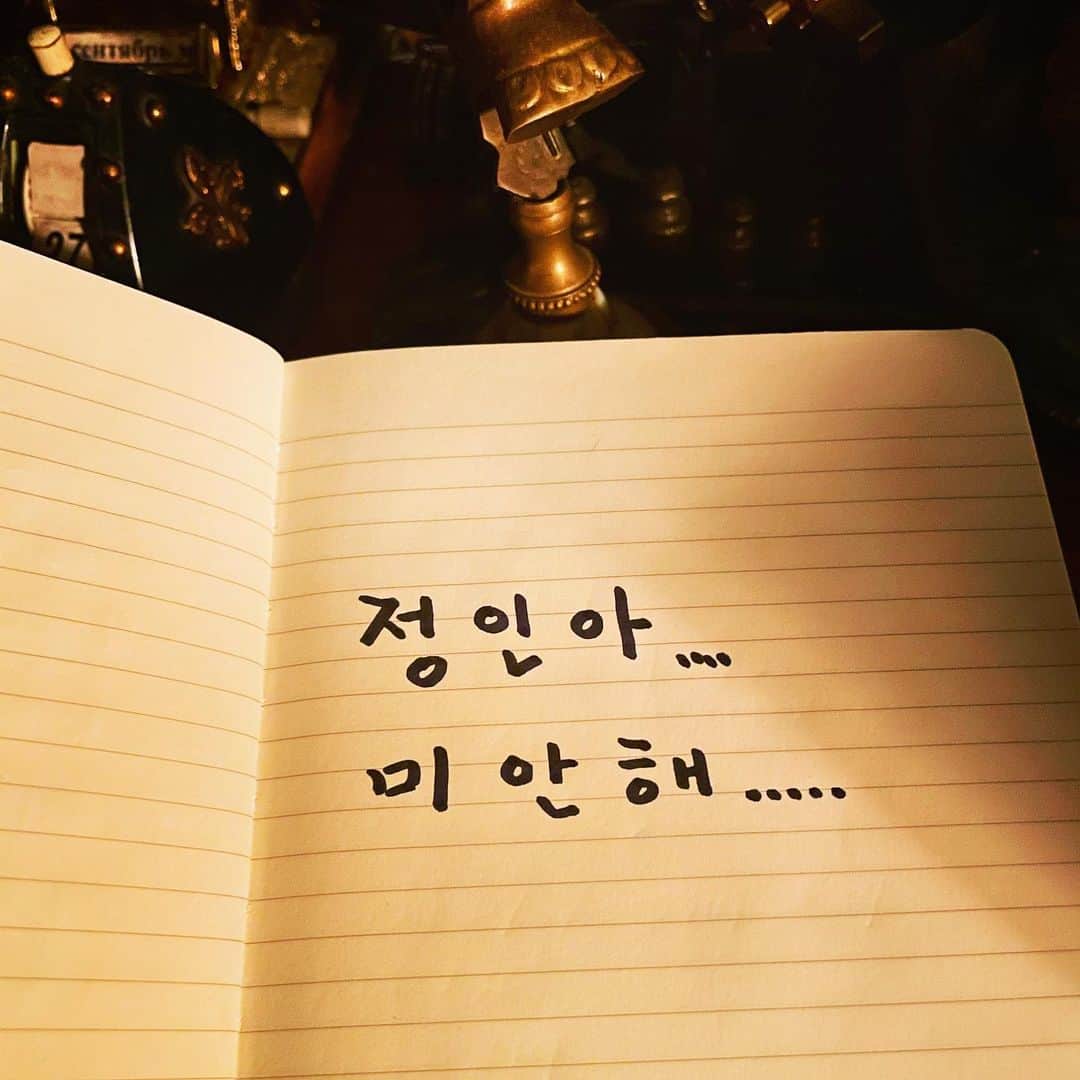 сентябрь
27
정인아....
미안해.....